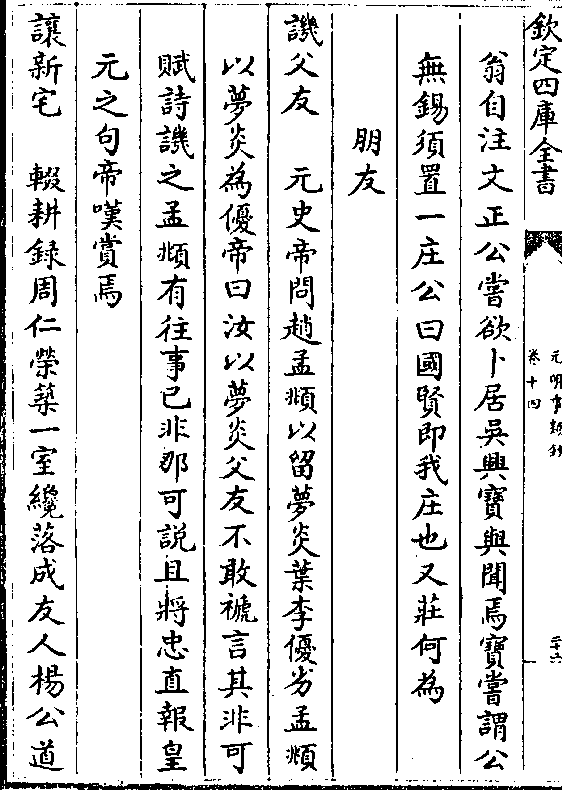 欽定四庫全書
元明事類鈔
卷十四
二十六
翁自注文正公嘗欲卜居吳興寶與聞焉寶嘗謂公
無錫須置一庄公曰國賢即我庄也又莊何為
朋友
譏父友　元史帝問趙孟頫以留夢炎葉李優劣孟頫
以夢炎為優帝曰汝以夢炎父友不敢褫言其非可
賦詩譏之孟頫有往事已非那可説且將忠直報皇
元之句帝嘆賞焉
讓新宅　輟耕録周仁榮築一室纔落成友人楊公道